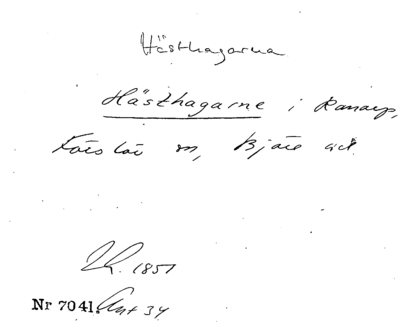 Hästhagarna
Hästhagarne i Ranarp,
Förslöv sn, Bjäre hd.
LK. 1851
Nr 7041. Akt 34